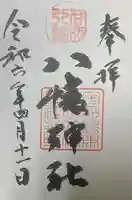 奉拝
八幡神社
令和六年四月十一日